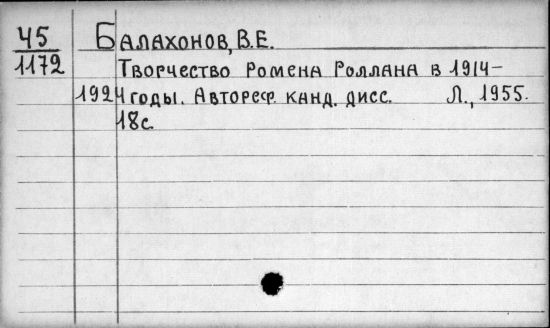 45 Балахонов, В.Е.
1172 Творчество Ромена Роллана в 1914–
1924 годы. Автореф. канд. дисс. Л., 1955.
18с.